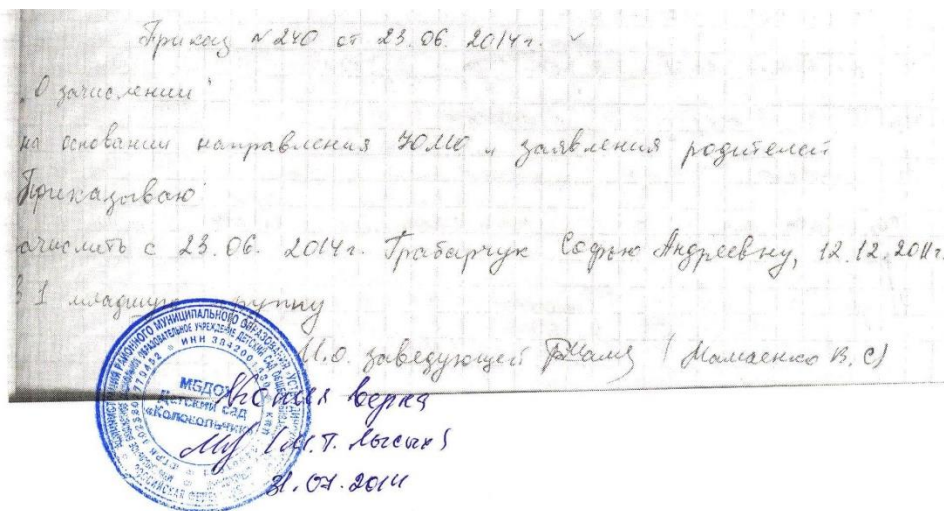 Приказ № 240 от 23.06.2014г.
"О зачислении"
на основании направления и заявления родителей
Приказываю
ачислить с 23.06.2014г. Грабарчук Софью Андреевну, 12.12.2011г.
в 1 младшую группу
И.о. заведующей (Мамаенко В.С)
МБДОУ
Детский сад
«Колокольчик»
Копия верна
(М.Т. Лысых)
31.07.2014